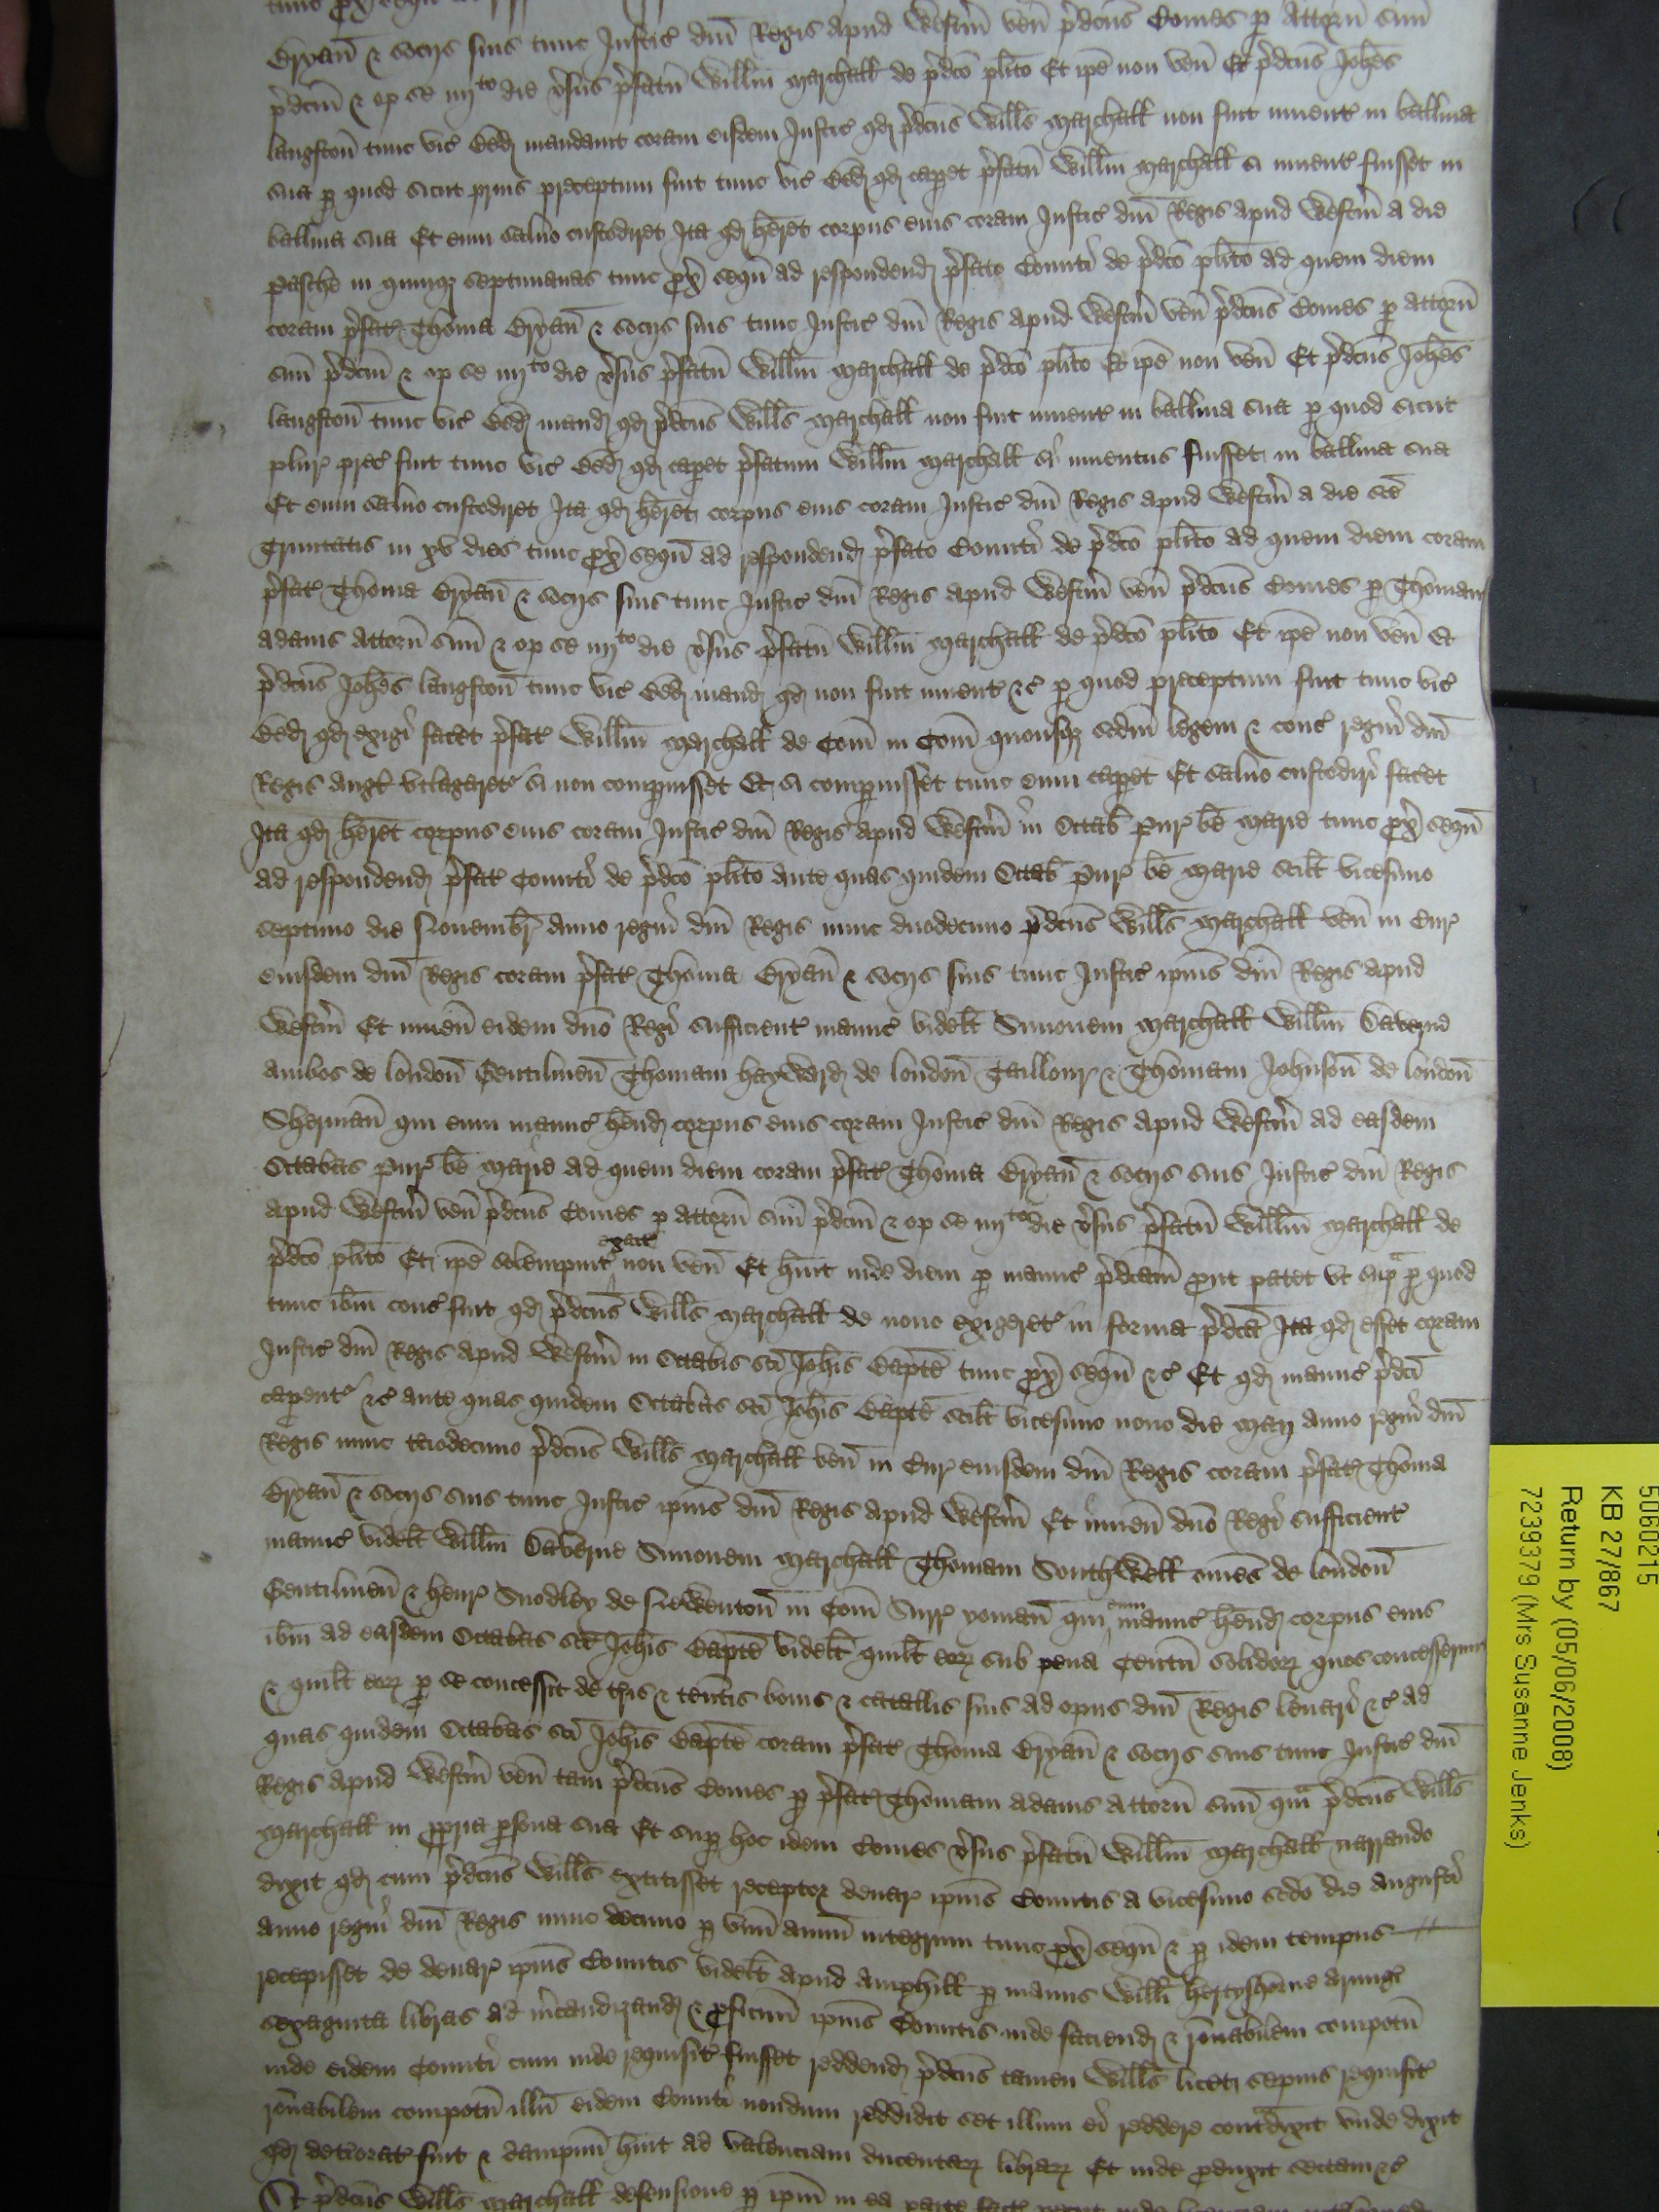 Bryan & socijs suis tunc Justic dni Regis apud Westm ven pdcus Comes p Attorn suu
pdcm & op se iiijto die vsus pfatu Willm Marchall de pdco plito Et ipe non ven Et pdcus Johes
langston tunc vic Bed mandavit coram eisdem Justic qd pdcus Wills Marchall non fuit invent in balliva
sua p quod sicut prius preceptum fuit tunc vic Bed qd capet pfatu Willm Marchall si invent fuisset in
balliva sua Et eum salvo custodiret Ita qd heret corpus eius coram Justic dni Regis apud Westm a die
Pasche in quinq septimanas tunc px sequ ad respondend pfato Comiti de pdco plito ad quem diem
coram pfat Thoma Bryan & socijs suis tunc Justic dni Regis apud Westm ven pdcus Comes p Attorn
suu pdcm & op se iiijto die vsus pfatu Willm Marchall de pdco plito Et ipe non ven Et pdcus Johes
langston tunc vic Bed mand qd pdcus Wills Marchall non fuit invent in balliva sua p quod sicut
plur prec fuit tunc vic Bed qd capet pfatum Willm Marchall si inventus fuisset in balliva sua
Et eum salvo custodiret Ita qd heret corpus eius coram Justic dni Regis apud Westm a die sce
Trinitatis in xv dies tunc px sequ ad respondend pfato Comiti de pdco plito ad quem diem coram
pfat Thoma Bryan & socijs suis tunc Justic dni Regis apud Westm ven pdcus Comes p Thomam
Adams Attorn suu & op se iiijto die vsus pfatu Willm Marchall de pdco plito Et ipe non ven Et
pdcus Johes langston tunc vic Bed mand qd non fuit invent &c p quod preceptum fuit tunc vic
Bed qd exigi facet pfat Willm Marchall de Com in Com quousq scdm legem & cons regni dni
Regis Angl utlagaret si non compuisset Et si compuisset tunc eum capet Et salvo custodiri facet
Ita qd heret corpus eius coram Justic dni Regis apud Westm in Octab Pur be Marie tunc px sequ
ad respondend pfat Comiti de pdco plito Ante quas quidem Octab Pur be Marie scilt vicesimo
septimo die Novembr anno regni dni Regis nunc duodecimo pdcus Wills Marchall ven in Cur
eiusdem dni Regis coram pfat Thoma Bryan & socijs suis tunc Justic ipius dni Regis apud
Westm Et inven eidem dno Regi sufficient manuc videlt Simonem Marchall Willm Daverne
ambos de london Gentilmen Thomam hayward de london Taillour & Thomam Johnson de london
Sherman qui eum manuc hend corpus eius coram Justic dni Regis apud Westm ad easdem
Octabas Pur be Marie ad quem diem coram pfat Thoma Bryan & socijs suis Justic dni Regis
apud Westm ven pdcus Comes p attorn suu pdcm & op se iiijto die vsus pfatu Willm Marchall de
pdco plito Et ipe solempnit exact non ven Et huit inde diem p manuc pdcam put patet ut sup p quod
tunc ibm cons fuit qd pdcus Wills Marchall de novo exigeret in forma pdca Ita qd esset coram
Justic dni Regis apud Westm in Octabis sci Johis Bapte tunc px sequ &c Et qd manuc pdci
capent &c ante quas quidem Octabas sci Johis Bapte scilt vicesimo nono die Maij anno regni dni
Regis nunc tciodecimo pdcus Wills Marchall ven in Cur eiusdem dni Regis coram pfat Thoma
Bryan & socijs suis tunc Justic ipius dni Regis apud Westm Et inven dno Regi sufficient
manuc videlt Willm Daverne Simonem Marchall Thomam Southwell omes de london
Gentilmen & henr Snodley de Newenton in Com Surr yoman qui eum manuc hend corpus eius
ibm ad easdem Octabas sci Johis Bapte videlt quilt eor sub pena Centu solidor quos concesserunt
& quilt eor p se concessit de tris & tentis bonis & catallis suis ad opus dni Regis levari &c ad
quas quidem Octabas sci Johis Bapte coram pfat Thoma Bryan & socijs suis tunc Justic dni
Regis apud Westm ven tam pdcus Comes p pfat Thomam Adams Attorn suu qm pdcus Wills
Marchall in ppria psona sua Et sup hoc idem Comes vsus pfatu Willm Marchall narrando
dixit qd cum pdcus Wills extitisset receptor denar ipius Comitis a vicesimo scdo die Augusti
anno regni dni Regis nunc decimo p unu annu integrum tunc px sequ & p idem tempus
recepisset de denar ipius Comitis videlt apud Ampthill p manus Willi hertyshorne Armig
sexaginta libras ad mcandizand & pficuu ipius Comitis inde faciend & ronabilem compotu
inde eidem Comiti cum inde requisit fuisset reddend pdcus tamen Wills licet sepius requisit
ronabilem compotu illu eidem Comiti nondum reddidit set illum ei reddere contdixit unde dixit
qd deteriorat fuit & dampnu huit ad valenciam ducentar librar Et inde produxit sectam &c
Et pdcus Wills Marchall defensione p ipm in ea parte
5060215
KB 27/867
Return by (05/06/2008)
7239379 (Mrs Susanne Jenks)